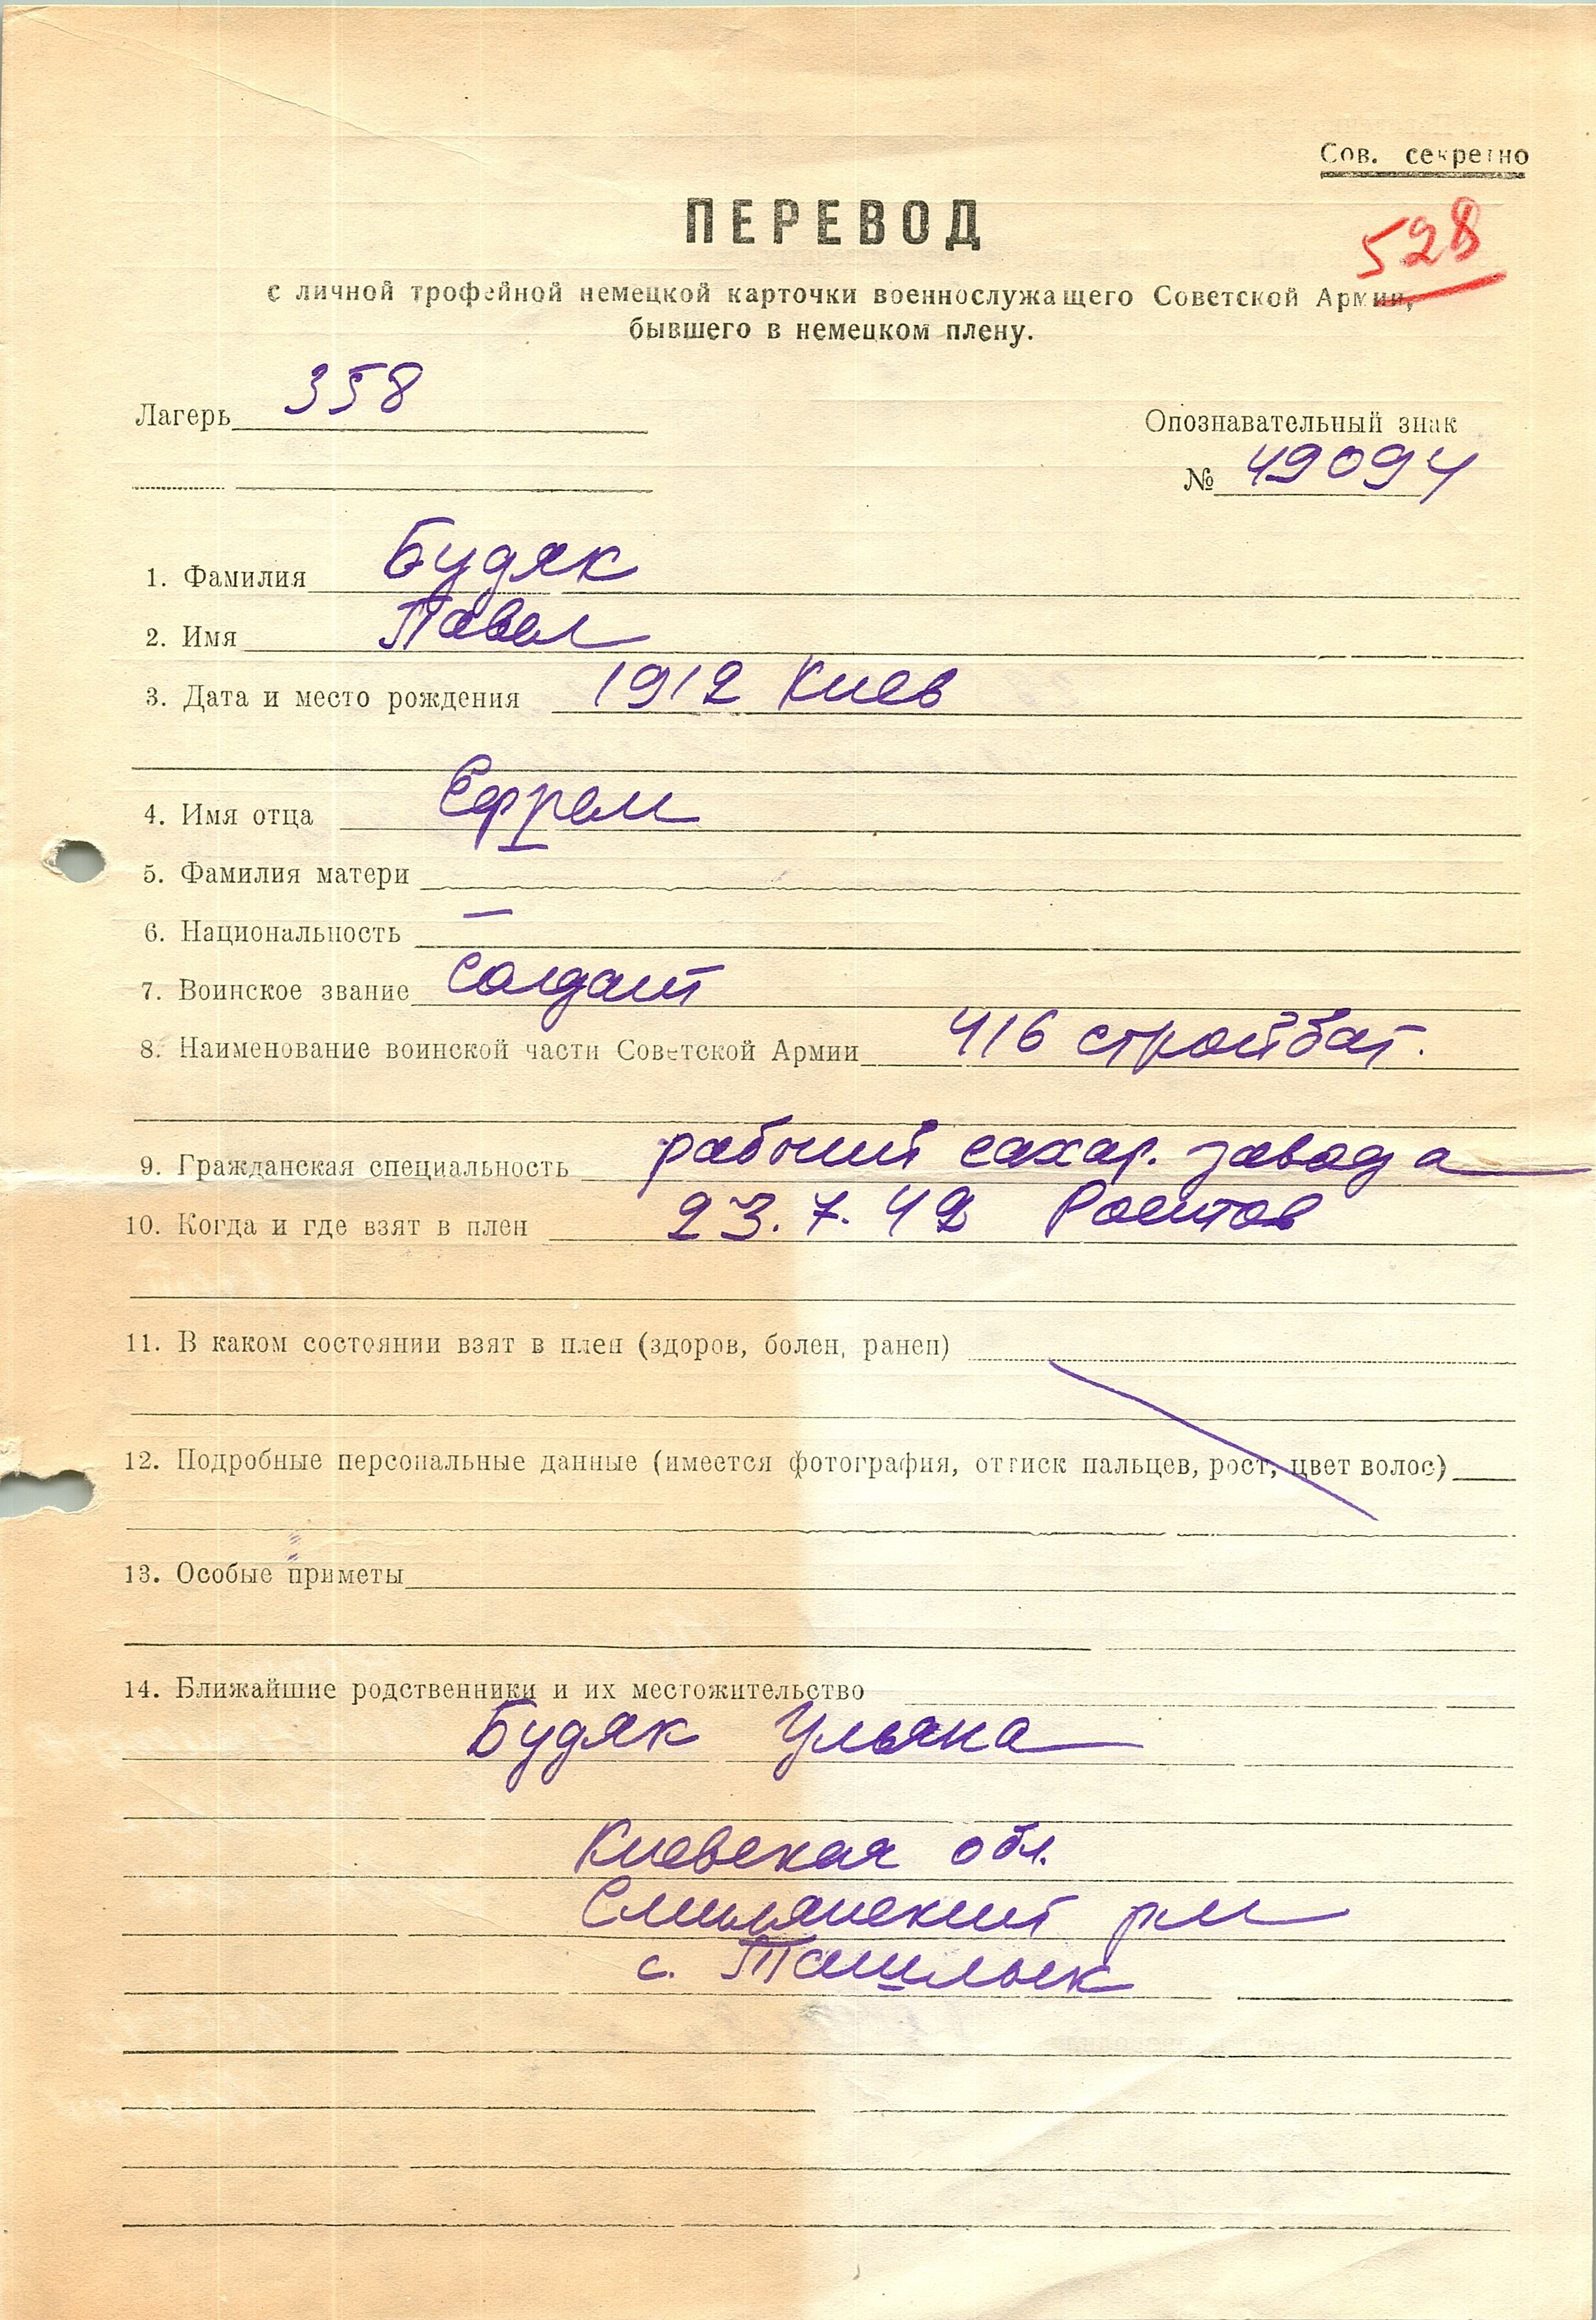 Сов. секретно
528
ПЕРЕВОД
с личной трофейной немецкой карточки военнослужащего Советской Армии,
бывшего в немецком плену.
Лагерь 358
Опознавательный знак
№ 49094
1. Фамилия Будяк
2. Имя Павел
3. Дата и место рождения 1912 Киев
4. Имя отца Ефрем
5. Фамилия матери
6. Национальность —
7. Воинское звание солдат
8. Наименование воинской части Советской Армии 416 стройбат.
9. Гражданская специальность рабочий сахар. завода
10. Когда и где взят в плен 23.7.42 Ростов
11. В каком состоянии взят в плен (здоров, болен, ранен)
12. Подробные персональные данные (имеется фотография, оттиск пальцев, рост, цвет волос)
13. Особые приметы
14. Ближайшие родственники и их местожительство
Будяк Ульяна
Киевская обл.
Смилянский рн
с. Ташлык